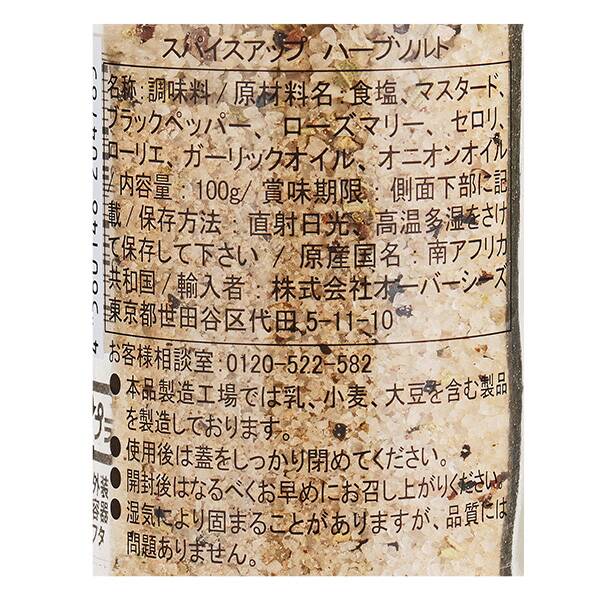 スパイスアップ ハーブソルト
名称:調味料/原材料名:食塩、マスタード、
ブラックペッパー、ローズマリー、セロリ、
ローリエ、ガーリックオイル、オニオンオイル
/内容量:100g/賞味期限:側面下部に記
載/保存方法:直射日光、高温多湿をさけ
て保存して下さい/原産国名:南アフリカ
共和国/輸入者:株式会社オーバーシーズ
東京都世田谷区代田5-11-10
お客様相談室:0120-522-582
●本品製造工場では乳、小麦、大豆を含む製品
を製造しております。
●使用後は蓋をしっかり閉めてください。
●開封後はなるべくお早めにお召し上がりください。
●湿気により固まることがありますが、品質には
問題ありません。
プラ
外装
容器
フタ